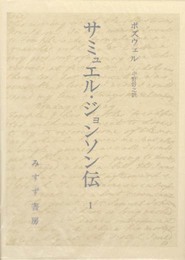 ボズウェル
中野好之訳
サミュエル・ジョンソン伝
1
みすず書房